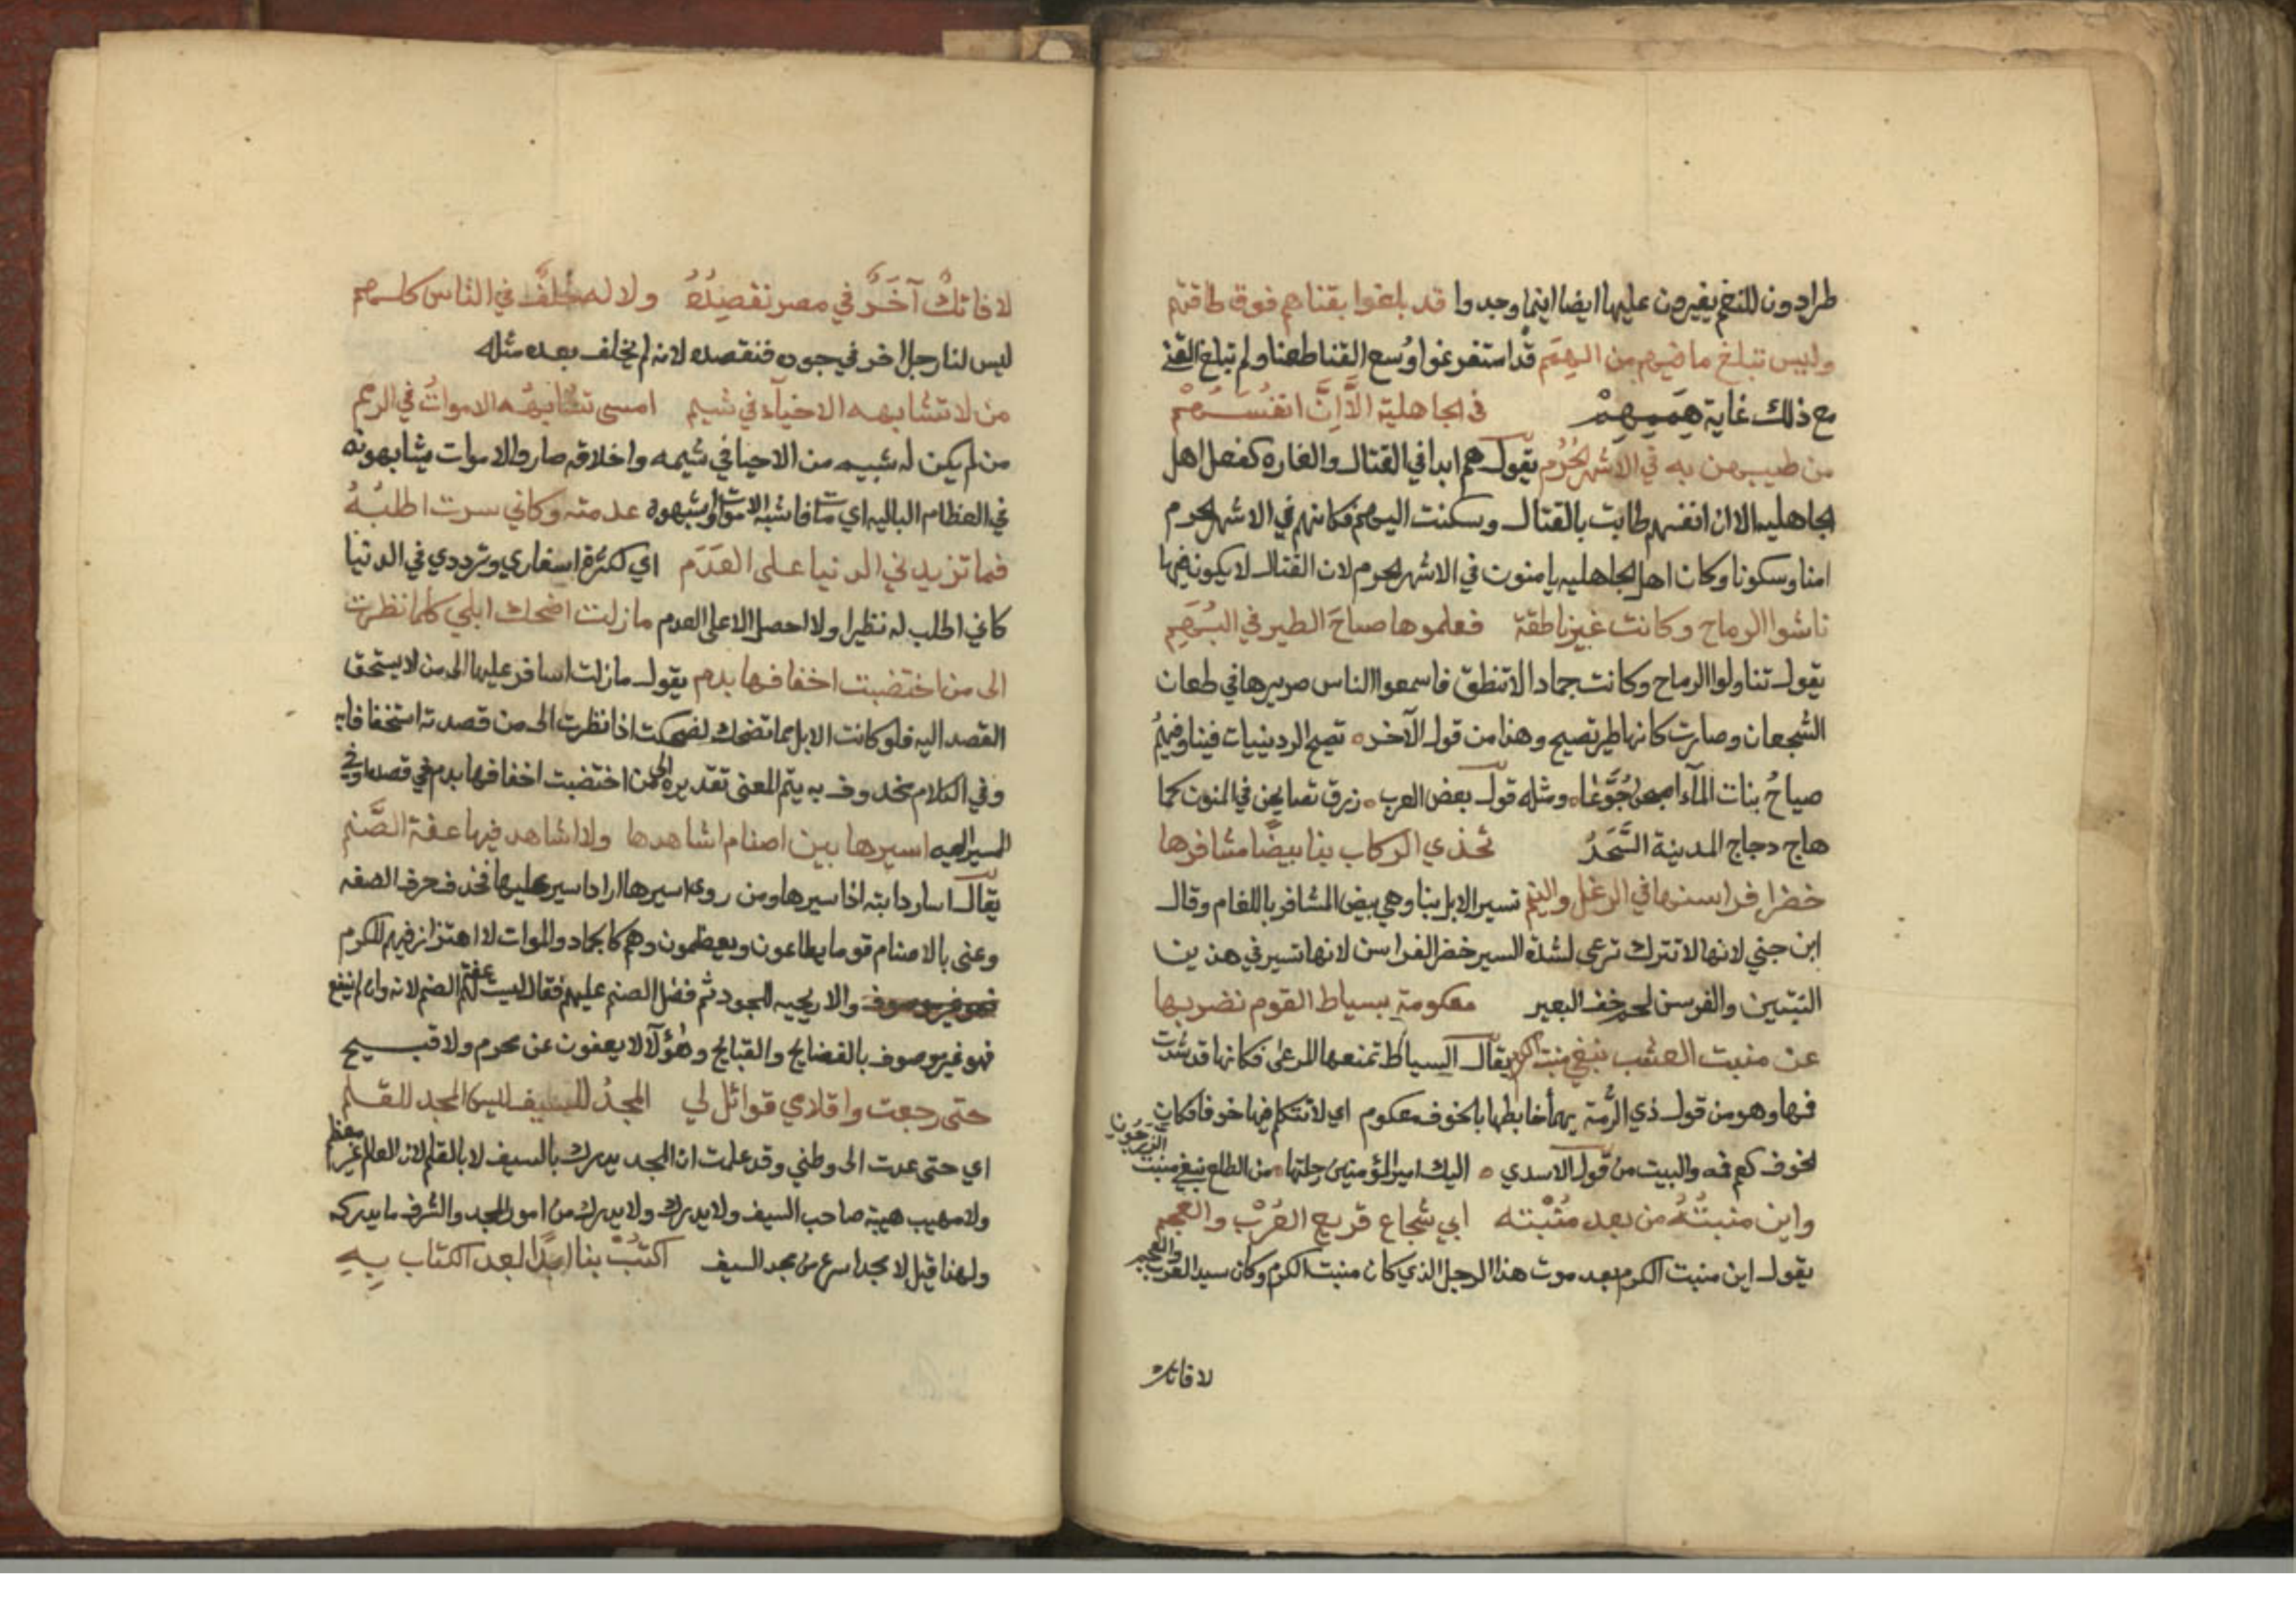 طرادون للنعم يغيرون عليها ايضا اينما وجدوا قد بلغوا بقناهم فوق طاقته
وليس تبلغ ما فيهم من الهمم قد استفرغوا وُسع القنا طعنا ولم تبلغ القنى
مع ذلك غاية هِمَمِهِمْ في الجاهلية الَّا اِنَّ انفُسَهُمْ
من طيبهن به في الاشهر الحُرُم يقول هم ابدا في القتال والغاره كفعل اهل
الجاهليه الا ان انفسهم طابت بالقتال وسكنت اليه فكانهم في الاشهر الحرم
امنا وسكونا وكان اهل الجاهليه يامنون في الاشهر الحرم لان القتال لا يكون فيها
ناشوا الرماح وكانت غير ناطقة فعلموها صياحَ الطير في البُهَمِ
يقول تناولوا الرماح وكانت جمادا لا تنطق فاسمعوا الناس صريرها في طعان
الشجعان وصارت كانها طير تصيح وهذا من قول الآخر تصيح الردينيات فينا وفيهمُ
صياحُ بنات المآء اصبحن جُوَّعَا ومثله قول بعض العرب زرق تصايحن في المتون كما
هاج دجاج المدينة السَّحَرُ تخذي الركاب بنا بيضًا مشافرها
خضرا فراسنها في الرغل والينم تسير الابل بنا وهي بيض المشافر باللغام وقال
ابن جني لانها لا تترك ترعى لشدة السير خضر الفراسن لانها تسير في هذين
النبتين والفرسن لحم خف البعير معكومة بسياط القوم نضربها
عن منبت العشب نبغي منبت الكرم يقال السياط تمنعها المرعى فكانها قد شدت
فمها وهو من قول ذي الرُّمة يهماء خابطها بالخوف معكوم اي لا تتكلم فيها خوفا فكان
الخوف كعم فمه والبيت من قول الاسدي اليك امير المؤمنين رحلتها من الطلع نبغي منبت
الزَرَجُونِ
واين منبتُهُ من بعد مَنْبِتِه ابي شجاع قريع العُرْب والعجم
يقول اين منبت الكرم بعد موت هذا الرجل الذي كان منبت الكرم وكان سيد العرب
والعجم
لا فاتك
لا فاتكٌ آخَرٌ في مصر نقصِدُهُ ولا له خلَفٌ في الناس كلهم
ليس لنا رجل اخر في جوده فنقصده لانه لم يخلف بعده مثله
من لا تشابهه الاحيآء في شيم امسى تشابهُه الامواتُ في الرمم
من لم يكن له شبيه من الاحيا في شيمه واخلاقه صار والاموات يشابهونه
في العظام الباليه اي مات فاشبه الاموات واشبهوه عدمته وكاني سرت اطلبُهُ
فما تزيدني الدنيا على العَدَم اي لكثرة اسفاري وترددي في الدنيا
كاني اطلب له نظيرا ولا احصل الا على العدم مازلت اضحك ابلي كلما نظرت
الى من اختضبت اخفافها بدم يقول مازلت اسافر عليها الى من لا يستحق
القصد اليه فلو كانت الابل مما تضحك لضحكت اذا نظرت الى من قصدته استخفافا به
وفي الكلام محذوف به يتم المعنى تقديره الى من اختضبت اخفافها بدم في قصده وفي
المسير اليه اسيرها بين اصنام اشاهدها ولا اشاهد فيها عفة الصَّنم
يقال اسار دابته اذا سيرها ومن روى اسيرها اراد اسير عليها فحذف حرف الصفه
وعنى بالاصنام قوما يطاعون ويعظمون وهم كالجماد والموات لا اهتزاز فيهم للكرم
والاريحيه للجود ثم فضل الصنم عليهم فقال ليست لهم عفة الصنم لانه وان لم ينفع
فهو غير موصوف بالفضايح والقبايح وهؤلآ لا يعفون عن محرم ولا قبيح
حتى رجعت واقلامي قوائل لي المجدُ للسيف ليس المجد للقلم
اي حتى عدت الى وطني وقد علمت ان المجد يدرك بالسيف لا بالقلم لان العالم غير معظم
ولا مهيب هيبة صاحب السيف ولا يدرك ولا يدرك من امور المجد والشرف ما يدركه
ولهذا قيل لا مجد اسرع من مجد السيف اكتُبْ بنا ابدًا بعد الكتاب بِهِ